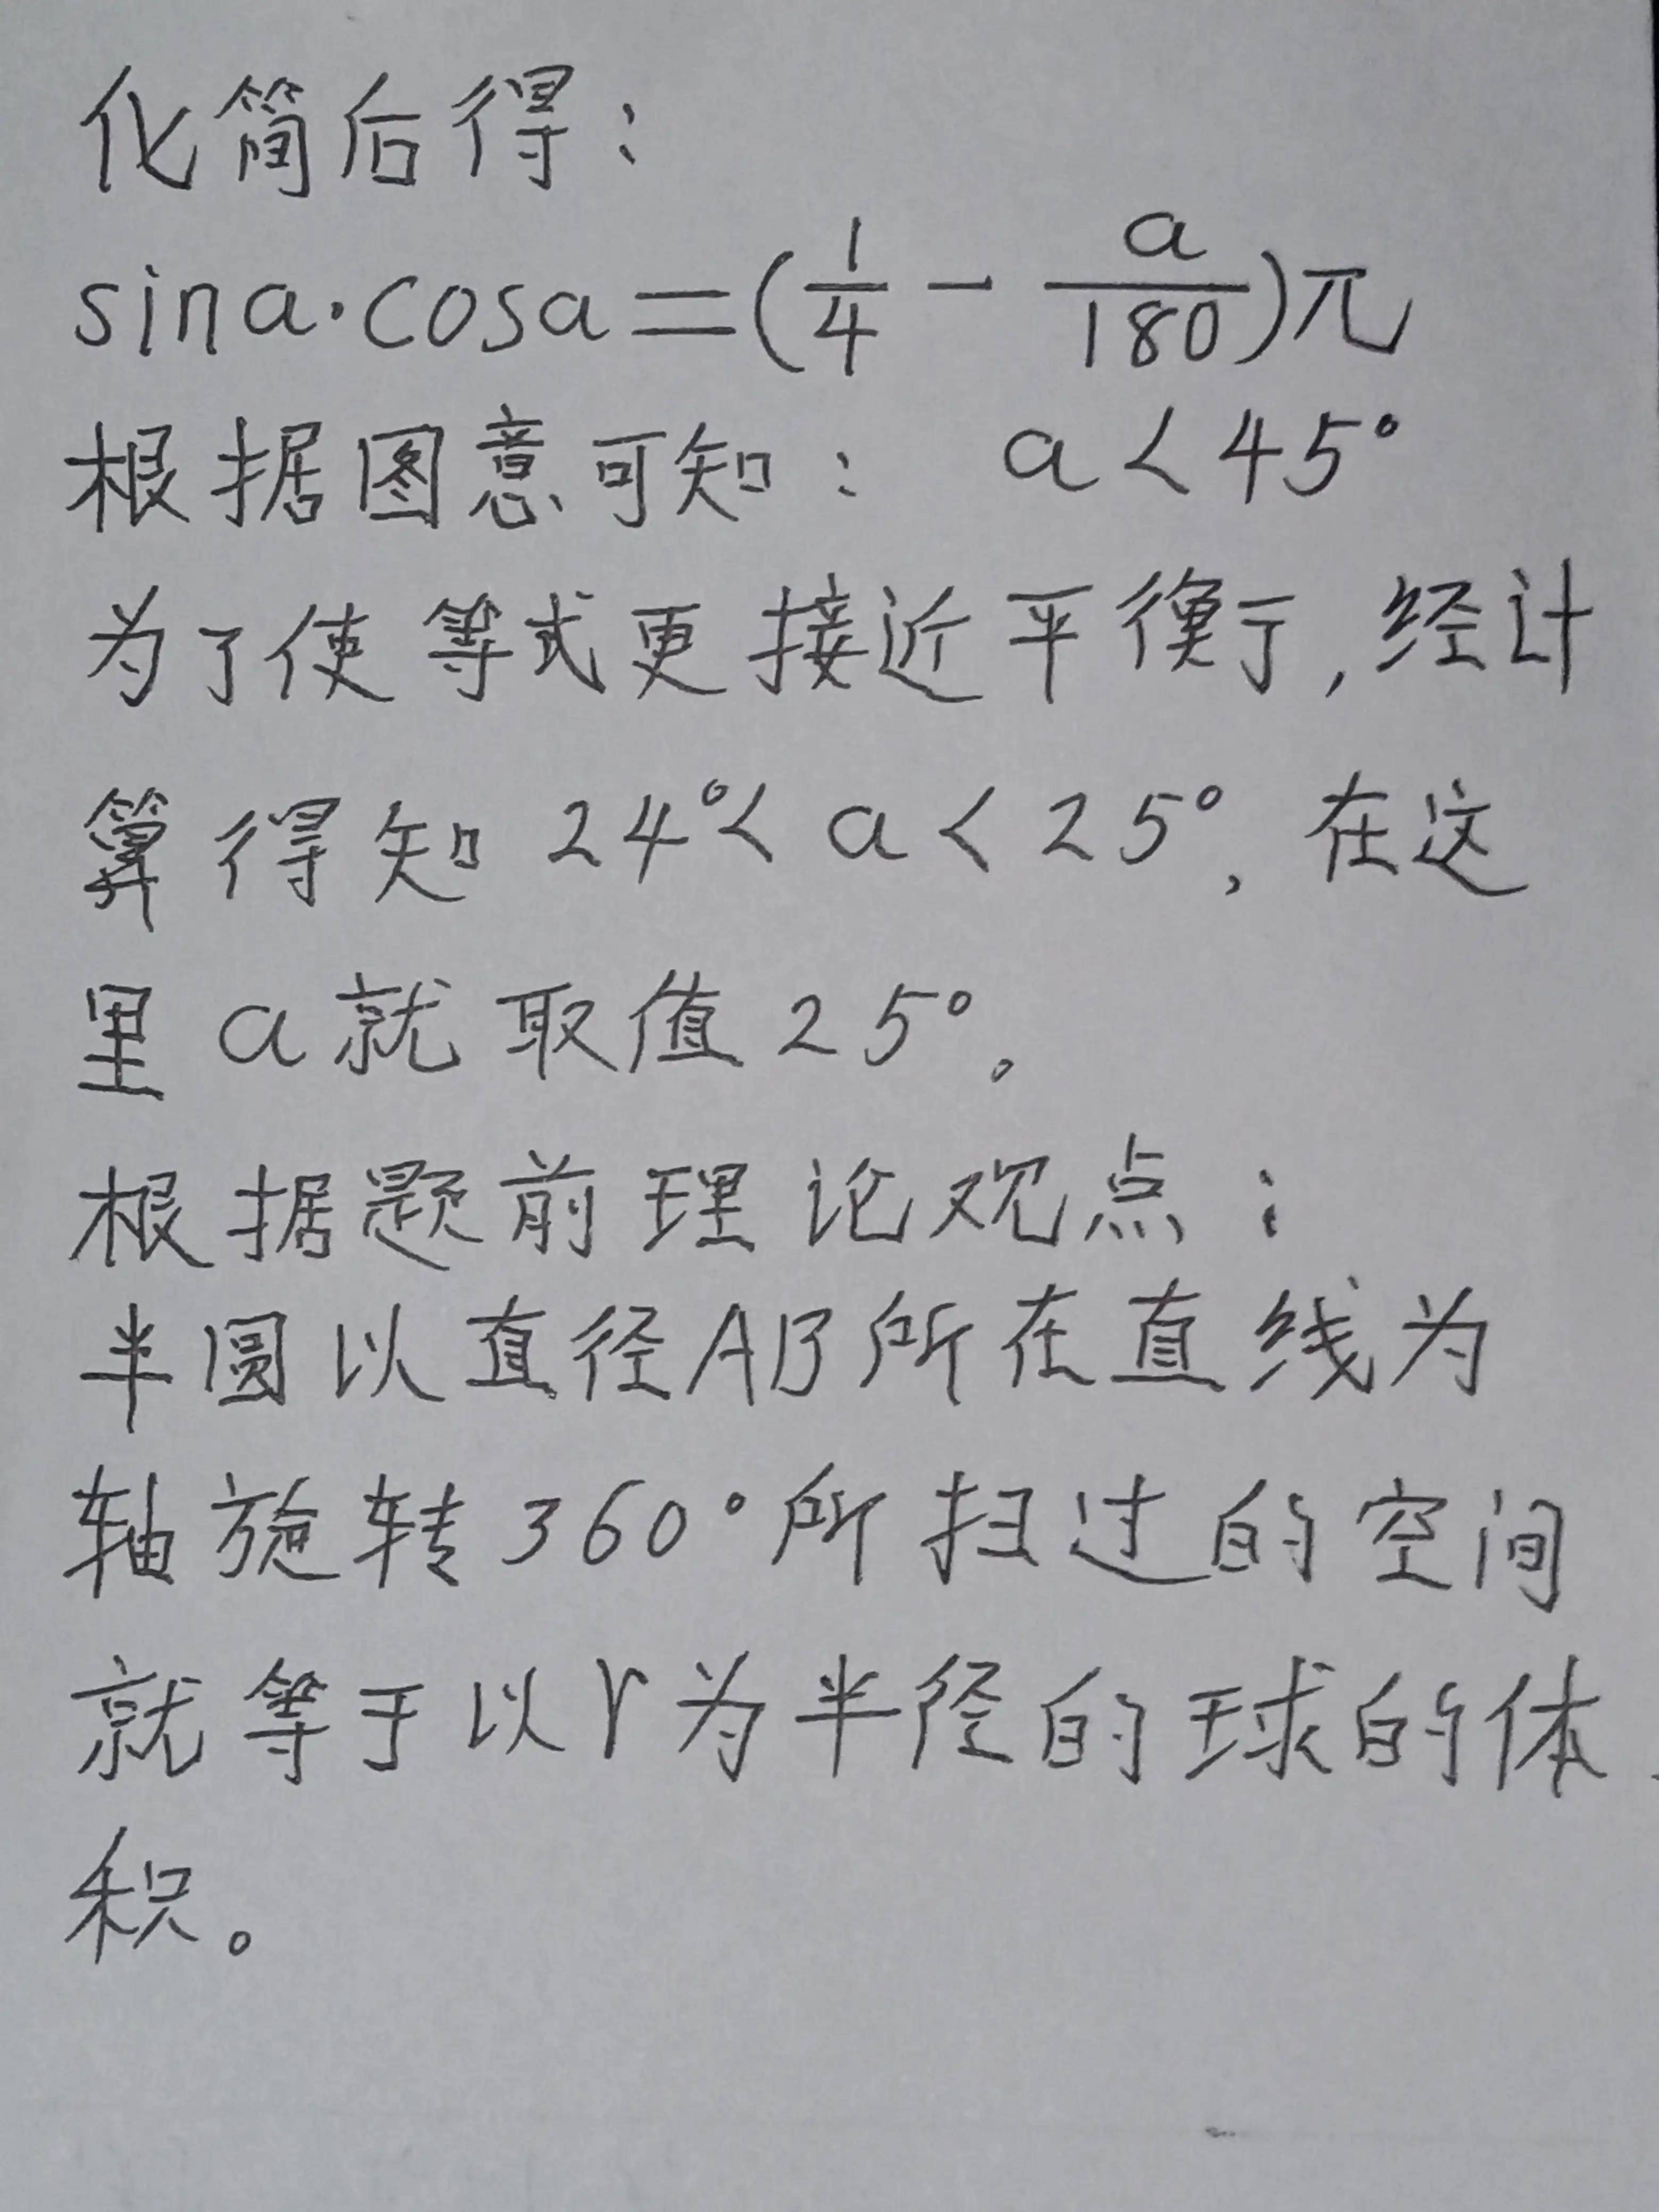 化简后得：
sina·cosa=(1/4-a/180)π
根据图意可知： a<45°
为了使等式更接近平衡于,经计
算得知24°<a<25°,在这
里a就取值25°,
根据题前理论观点：
半圆以直径AB所在直线为
轴旋转360°所扫过的空间
就等于以r为半径的球的体
积。